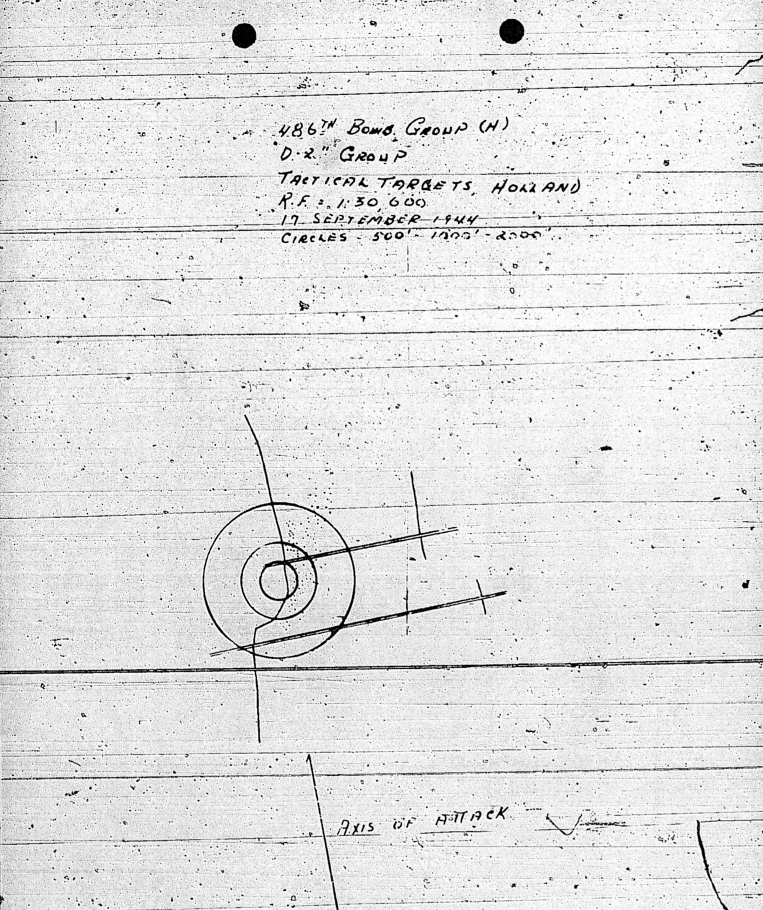 486TH BOMB. GROUP (H)
"D-2" GROUP
TACTICAL TARGETS, HOLLAND
R.F. = 1:30,000
17 SEPTEMBER 1944
CIRCLES - 500' - 1000' - 2000'
AXIS OF ATTACK